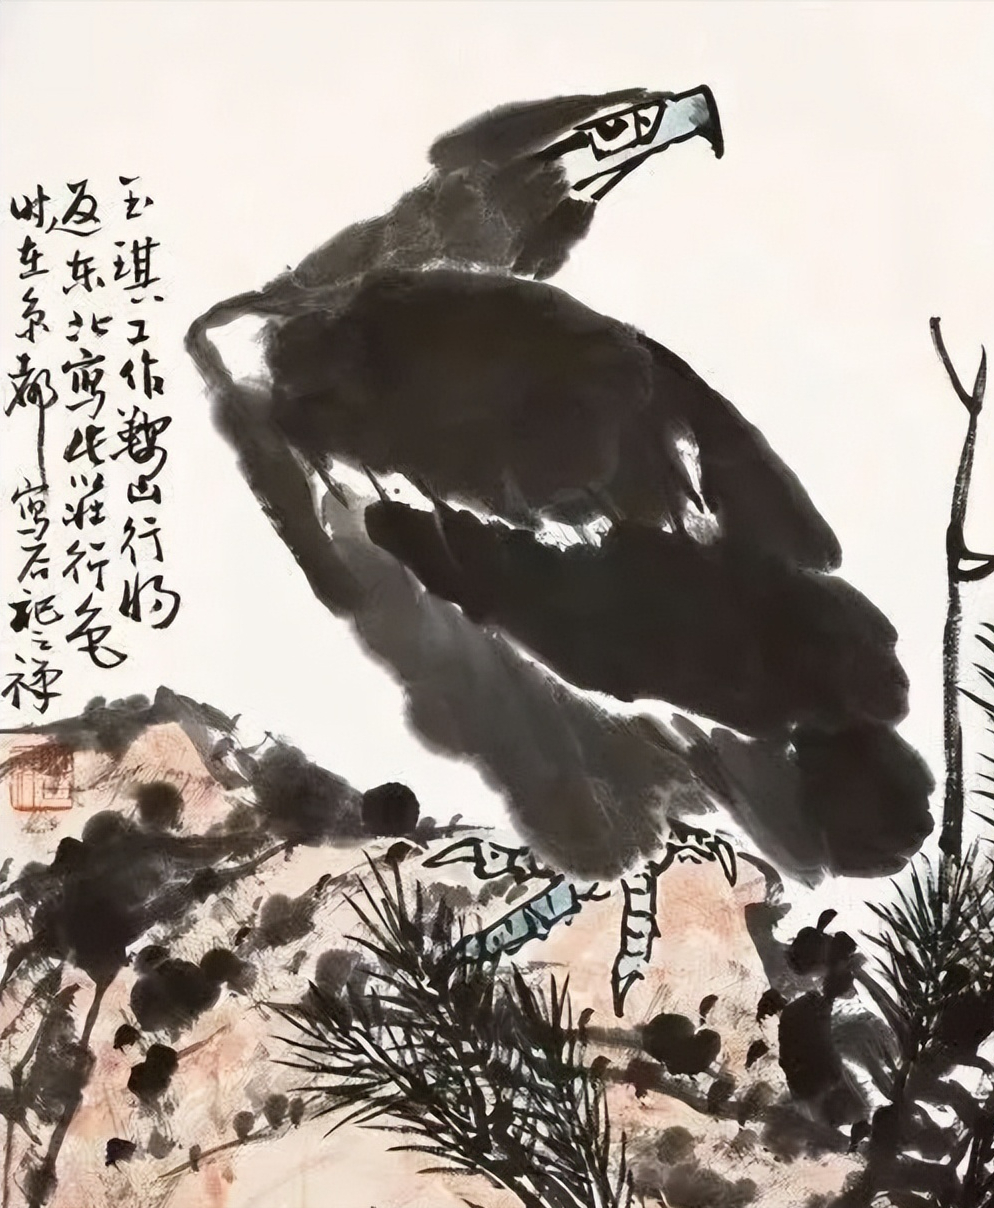 玉琪工作鞍山行将
返东北寫此以壮行色
时在京都寫石之禅